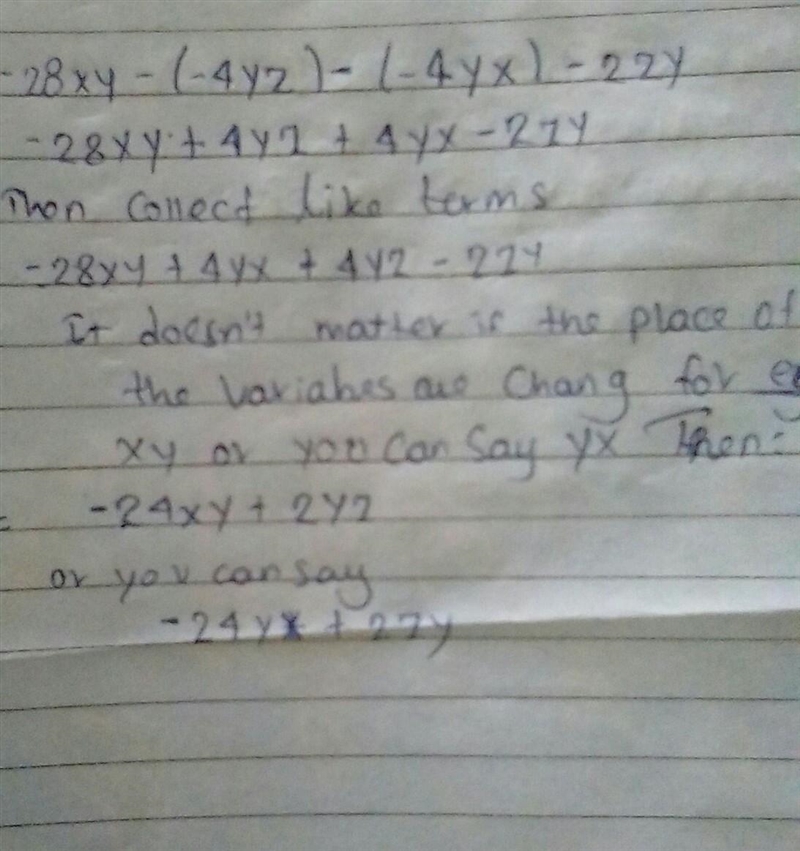 -28xy - (-4yz) - (-4yx) - 2zy
-28xy + 4yz + 4yx - 2zy
Then collect like terms
-28xy + 4yx + 4yz - 2zy
It doesn't matter if the place of
the variables are Chang for eg
xy or you can say yx Then:
= -24xy + 2yz
or you can say
-24yx + 2zy